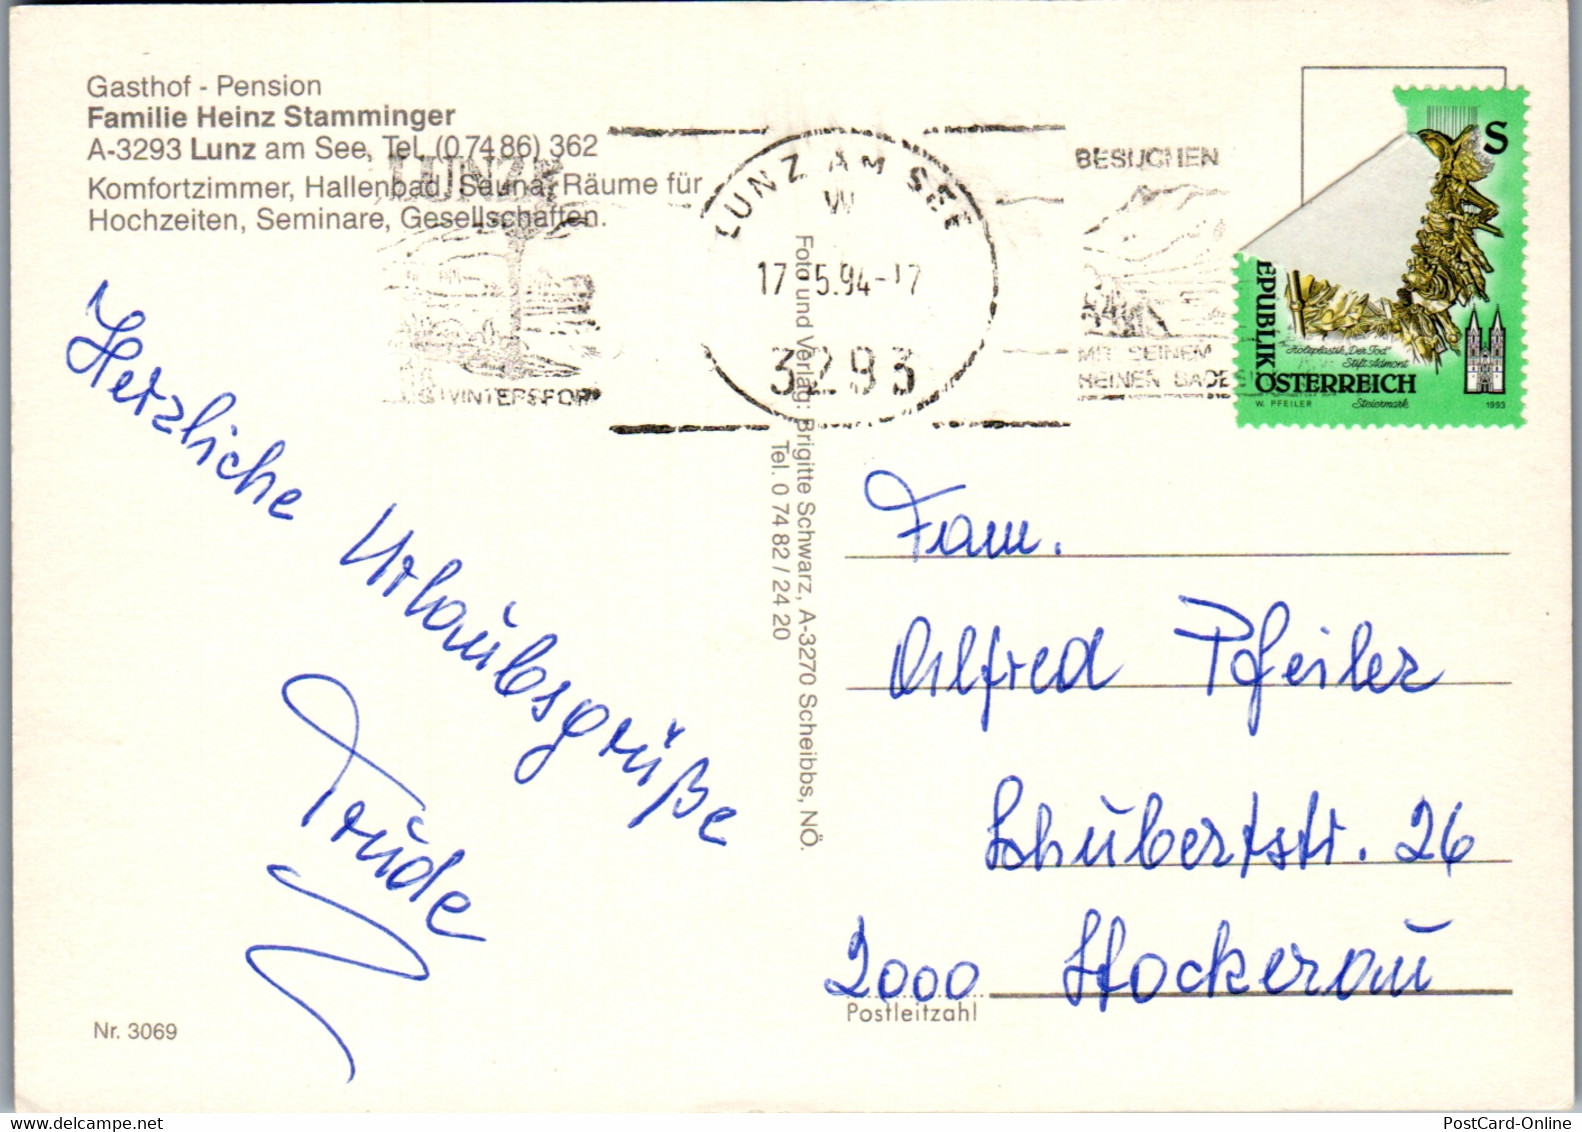 Gasthof - Pension
Familie Heinz Stamminger
A-3293 Lunz am See, Tel. (0 74 86) 362
Komfortzimmer, Hallenbad, Sauna, Räume für
Hochzeiten, Seminare, Gesellschaften.
LUNZ AM SEE
W
17 5.94-17
3293
BESUCHEN
MIT SEINEM
S
EPUBLIK
ÖSTERREICH
Holzplastik „Der Tod“
Stift Admont
Steiermark
W. PFEILER
1993
Herzliche Urlaubsgrüße
Trude
Foto und Verlag: Brigitte Schwarz, A-3270 Scheibbs, NÖ.
Tel. 0 74 82 / 24 20
Fam.
Alfred Pfeiler
Schubertstr. 26
2000 Stockerau
Postleitzahl
Nr. 3069
PostCard-Online